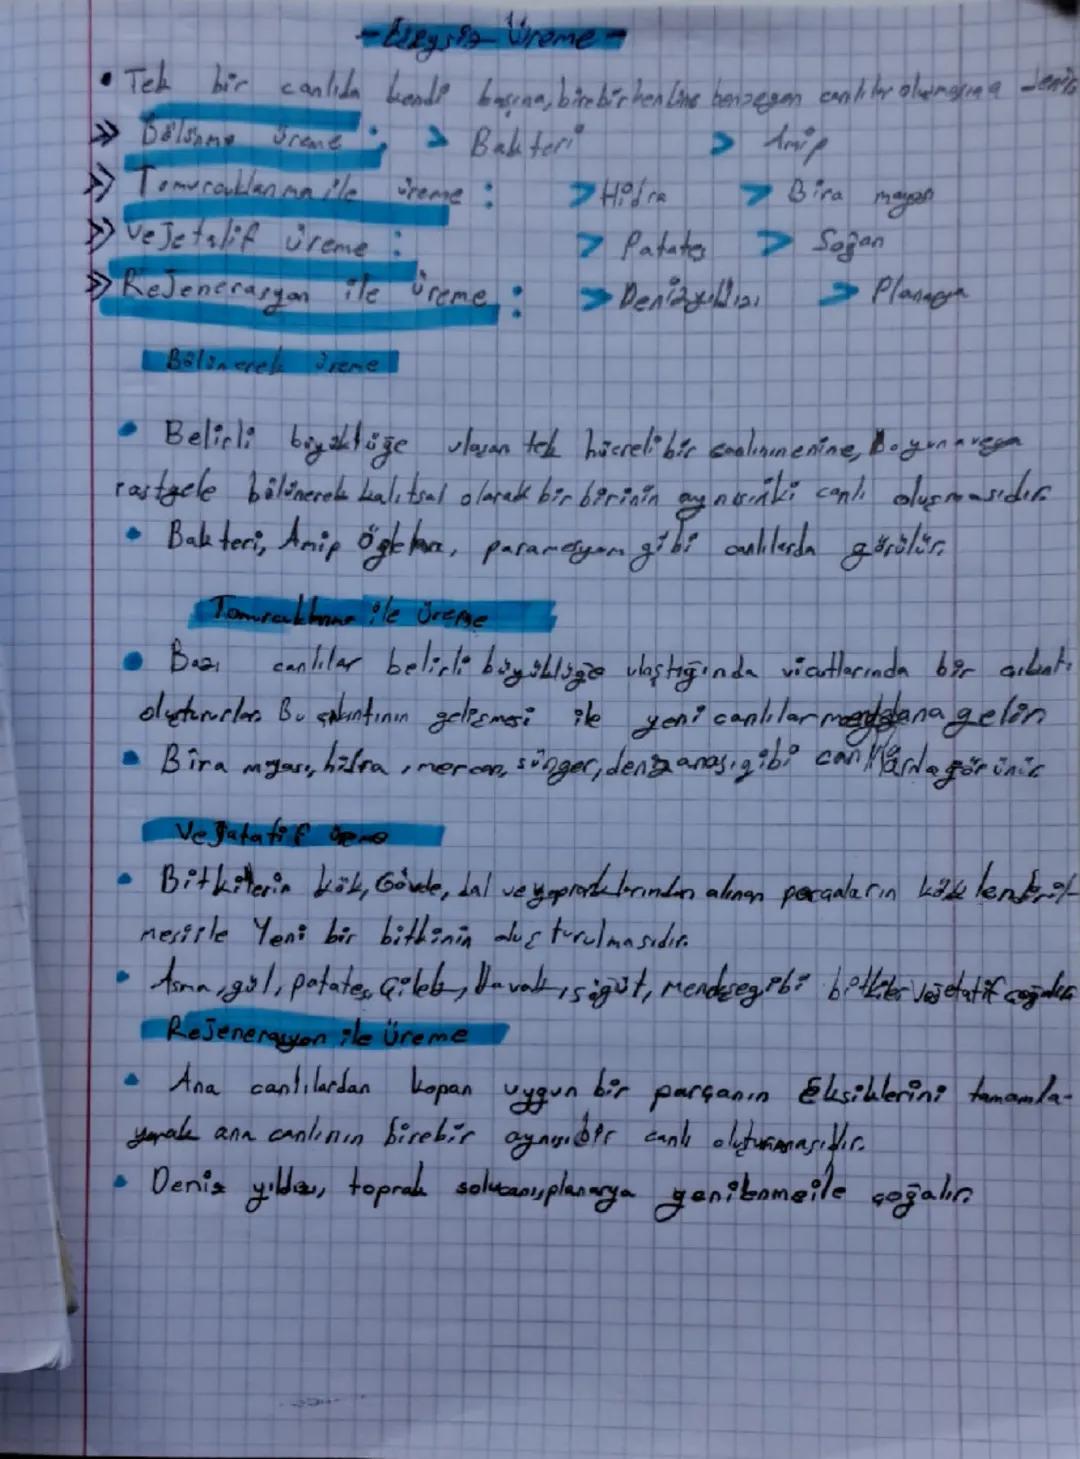 - Eşeysiz Üreme -
• Tek bir canlıda kendi başına, birebir kendine benzeyen canlılar oluşmasına denir
>> Bölünme üreme : > Bakteri > Amip
>> Tomurcuklanma ile üreme : > Hidra > Bira mayası
>> Vejetatif üreme : > Patates > Soğan
>> Rejenerasyon ile üreme : > Denizyıldızı > Planarya
Bölünerek üreme
• Belirli büyüklüğe ulaşan tek hücreli bir canlının enine, boyuna veya
rastgele bölünerek kalıtsal olarak bir birinin aynısı canlı oluşmasıdır.
• Bakteri, Amip Öglena, paramesyum gibi canlılarda görülür.
Tomurcuklanma ile üreme
• Bazı canlılar belirli büyüklüğe ulaştığında vücutlarında bir çıkıntı
oluştururlar. Bu çıkıntının gelişmesi ile yeni canlılar meydana gelir
• Bira mayası, hidra, mercan, sünger, deniz anası gibi canlılarda görünür
Vejatatif üreme
• Bitkilerin kök, Gövde, dal ve yapraklarından alınan parçaların köklendiril-
mesiyle Yeni bir bitkinin oluşturulmasıdır.
• Asma, gül, patates, Çilek, kavak, söğüt, menekşe gibi bitkiler vejetatif çoğalır
Rejenerasyon ile Üreme
• Ana canlılardan kopan uygun bir parçanın Eksiklerini tamamla-
yarak ana canlının birebir aynısı bir canlı oluşturmasıdır.
• Deniz yıldızı, toprak solucanı, planarya yenilenme ile çoğalır.